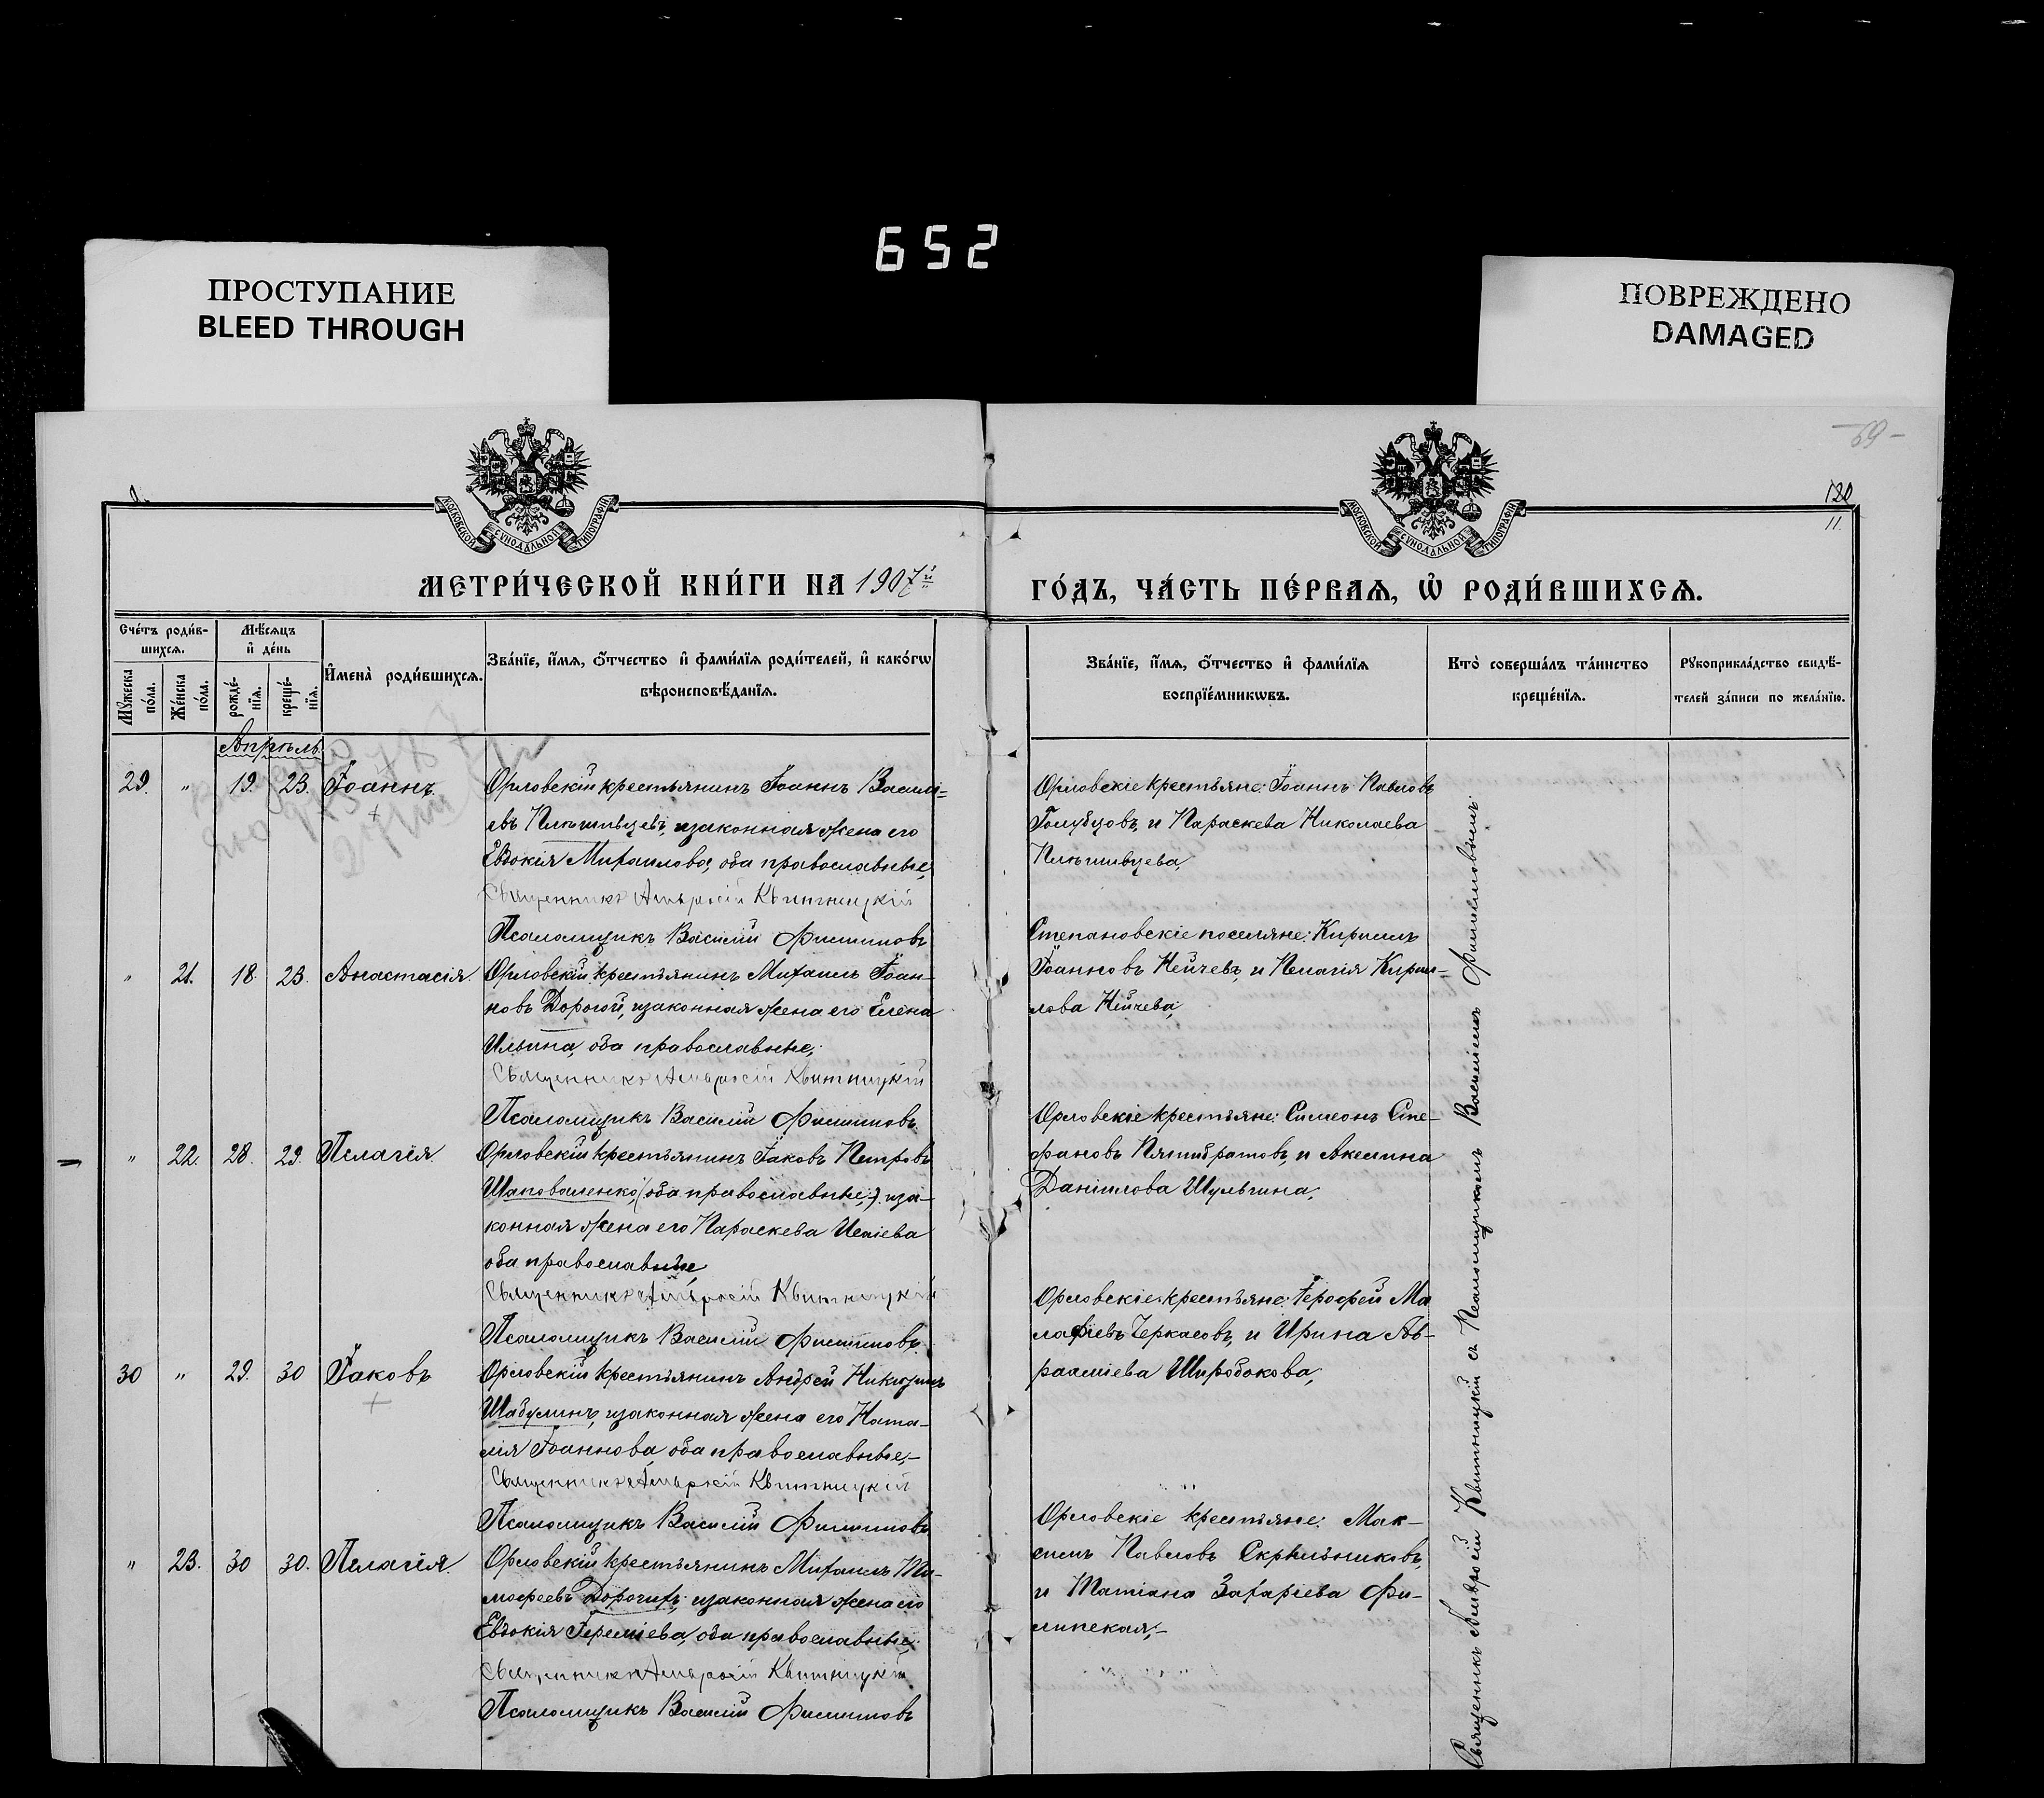 652
ПРОСТУПАНИЕ
BLEED THROUGH
ПОВРЕЖДЕНО
DAMAGED
-69-
120
11.
МОСКОВСКОЙ СѴНОДАЛЬНОЙ ТИПОГРАФІИ
МОСКОВСКОЙ СѴНОДАЛЬНОЙ ТИПОГРАФІИ
МЕТРИ́ЧЕСКОЙ КНИ́ГИ НА 1907й
ГО́ДЪ, ЧА́СТЬ ПЕ́РВАѦ, Ѡ҆ РОДИ́ВШИХСѦ.
Сче́тъ роди́в-
шихсѧ.
Мꙋжеска по́ла.
Же́нска по́ла.
Мѣ́сѧцъ
и҆ де́нь
рожде́-
нїѧ.
креще́-
нїѧ.
И҆мена̀ роди́вшихсѧ.
Зва́нїе, и҆́мѧ, ѻ҆́тчество и҆ фами́лїѧ роди́телей, и҆ како́гѡ
вѣроисповѣ́данїѧ.
Зва́нїе, и҆́мѧ, ѻ҆́тчество и҆ фами́лїѧ
воспрїе́мникѡвъ.
Кто̀ соверша́лъ та́инство
креще́нїѧ.
Рꙋкоприкла́дство свидѣ́-
телей за́писи по жела́нїю.
Апрѣль.
29. " 19. 23. Іоаннъ.
Орловскій крестьянинъ Іоаннъ Васил=
евъ Плѣшивцевъ, и законная жена его
Евдокія Михаилова, оба православные,
Священникъ Амвросій Квитницкій
Псаломщикъ Василій Филиповъ
Орловскіе крестьяне: Іоаннъ Павловъ
Голубцовъ, и Параскева Николаева
Плѣшивцева,
" 21. 18. 23. Анастасія.
Орловскій крестьянинъ Михаилъ Іоан-
новъ Дорогой, и законная жена его Елена
Ильина, оба православные,
Священникъ Амвросій Квитницкій
Псаломщикъ Василій Филиповъ
Степановскіе поселяне: Кириллъ
Іоанновъ Нейчевъ, и Пелагія Кирил-
лова Нейчева,
" 22. 28. 29. Пелагія.
Орловскій крестьянинъ Іаковъ Петровъ
Шаповаленко, (оба православные,) и за-
конная жена его Параскева Исаіева
оба православные
Священникъ Амвросій Квитницкій
Псаломщикъ Василій Филиповъ
Орловскіе крестьяне: Симеонъ Сте-
фановъ Пятибратовъ, и Акелина
Даніилова Шульгина,
30 " 29. 30 Іаковъ
Орловскій крестьянинъ Андрей Никитинъ
Шабулинъ, и законная жена его Ната-
лія Іоаннова, оба православные,-
Священникъ Амвросій Квитницкій
Псаломщикъ Василій Филиповъ
Орловскіе крестьяне: Іерофей Ма
лафіевъ Черкасовъ, и Ирина Ав-
рааміева Широбокова,
" 23. 30 30. Пелагія.
Орловскій крестьянинъ Михаилъ Ти-
мофеевъ Дорогихъ, и законная жена его
Евдокія Іереміева, оба православные,
Священникъ Амвросій Квитницкій
Псаломщикъ Василій Филиповъ
Орловскіе крестьяне: Мак-
симъ Павловъ Скрыльниковъ,
и Татіана Захаріева Фи-
липская,-
Священникъ Амвросій Квитницкій съ Псаломщикомъ Василіемъ Филиповымъ.